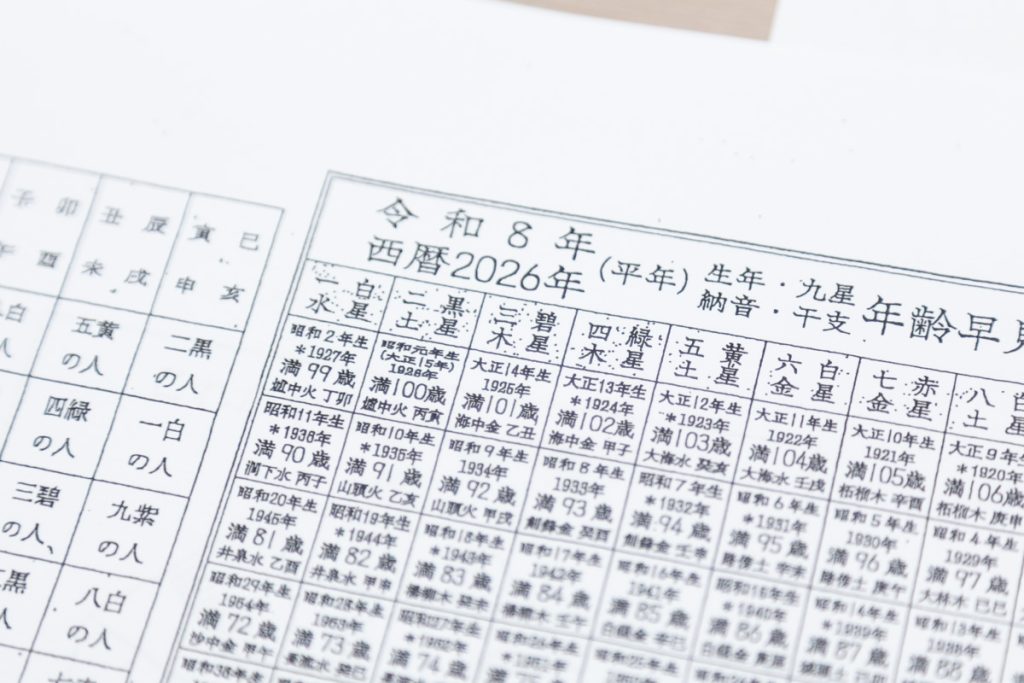 壬 卯
午 酉
丑 辰
未 戌
寅 巳
申 亥
五黄
の人
二黒
の人
四緑
の人
一白
の人
三碧
の人、
九紫
の人
八白
の人
令和8年
西暦2026年
(平年)
生年・九星
納音・干支
年齢早見
一白
水星
二黒
土星
三碧
木星
四緑
木星
五黄
土星
六白
金星
七赤
金星
八白
土星
昭和2年生
*1927年
満99歳
爐中火 丁卯
昭和元年生
(大正15年)
1926年
満100歳
爐中火 丙寅
大正14年生
1925年
満101歳
海中金 乙丑
大正13年生
*1924年
満102歳
海中金 甲子
大正12年生
*1923年
満103歳
大海水 癸亥
大正11年生
1922年
満104歳
大海水 壬戌
大正10年生
1921年
満105歳
柘榴木 辛酉
大正9年生
*1920年
満106歳
柘榴木 庚申
昭和11年生
*1936年
満90歳
澗下水 丙子
昭和10年生
*1935年
満91歳
山頭火 乙亥
昭和9年生
1934年
満92歳
山頭火 甲戌
昭和8年生
1933年
満93歳
劍鋒金 癸酉
昭和7年生
*1932年
満94歳
劍鋒金 壬申
昭和6年生
*1931年
満95歳
路傍土 辛未
昭和5年生
1930年
満96歳
路傍土 庚午
昭和4年生
1929年
満97歳
大林木 己巳
昭和20年生
1945年
満81歳
井泉水 乙酉
昭和19年生
*1944年
満82歳
井泉水 甲申
昭和18年生
*1943年
満83歳
楊柳木 癸未
昭和17年生
1942年
満84歳
楊柳木 壬午
昭和16年生
1941年
満85歳
白鑞金 辛巳
昭和15年生
*1940年
満86歳
白鑞金 庚辰
昭和14年生
*1939年
満87歳
昭和13年生
1938年
満88歳
昭和29年生
1954年
満72歳
沙中金 甲午
昭和28年生
1953年
満73歳
長流水 癸巳
昭和27年生
*1952年
満74歳
昭和26年生
*1951年
昭和25年生
昭和38年生